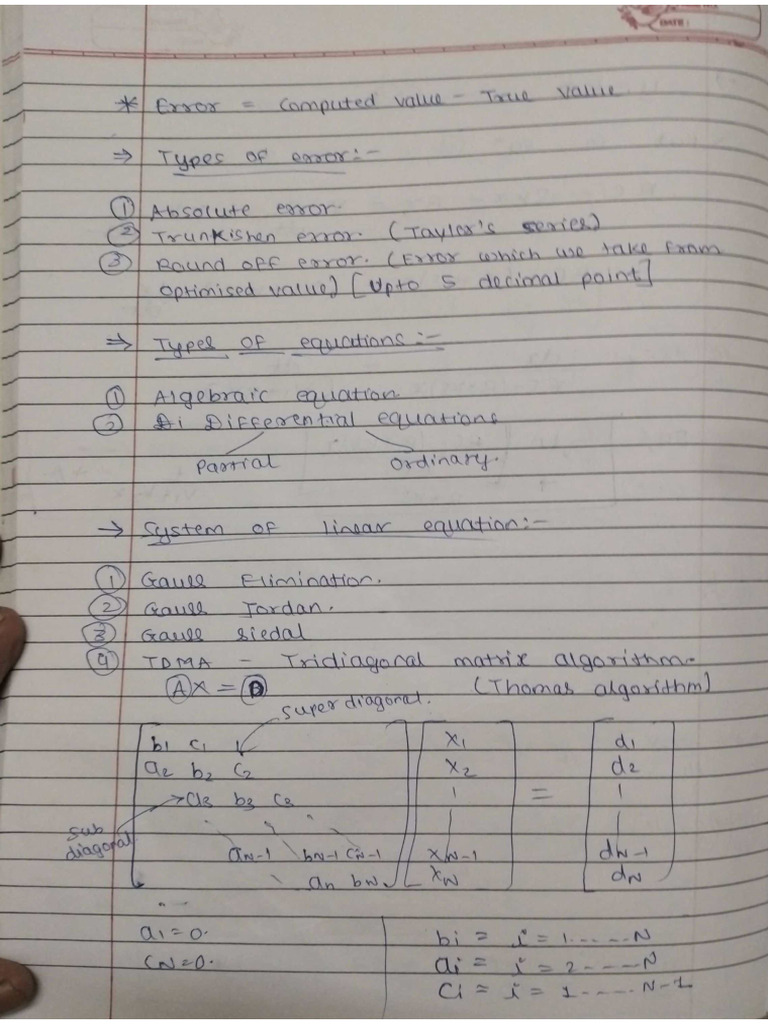 DATE:
* Error = Computed value - True value
⇒ Types of error:-
① Absolute error.
② Trunkishen error. (Taylor's series)
③ Round off error. (Error which we take from
optimised value) [Upto 5 decimal point]
⇒ Types of equations:-
① Algebraic equation
② Di Differential equations
Partial Ordinary.
→ System of linear equation:-
① Gauss Elimination.
② Gauss Jordan.
③ Gauss Siedal
④ TDMA - Tridiagonal matrix algorithm.
AX = B (Thomas algorithm)
super diagonal.
b1 c1 x1 d1
a2 b2 c2 x2 d2
a3 b3 c3 =
sub
diagonal
aN-1 bN-1 cN-1 xN-1 dN-1
an bN xN dN
a1=0. bi = i = 1.....N
CN=0. ai = i = 2.....N
Ci = i = 1.....N-1